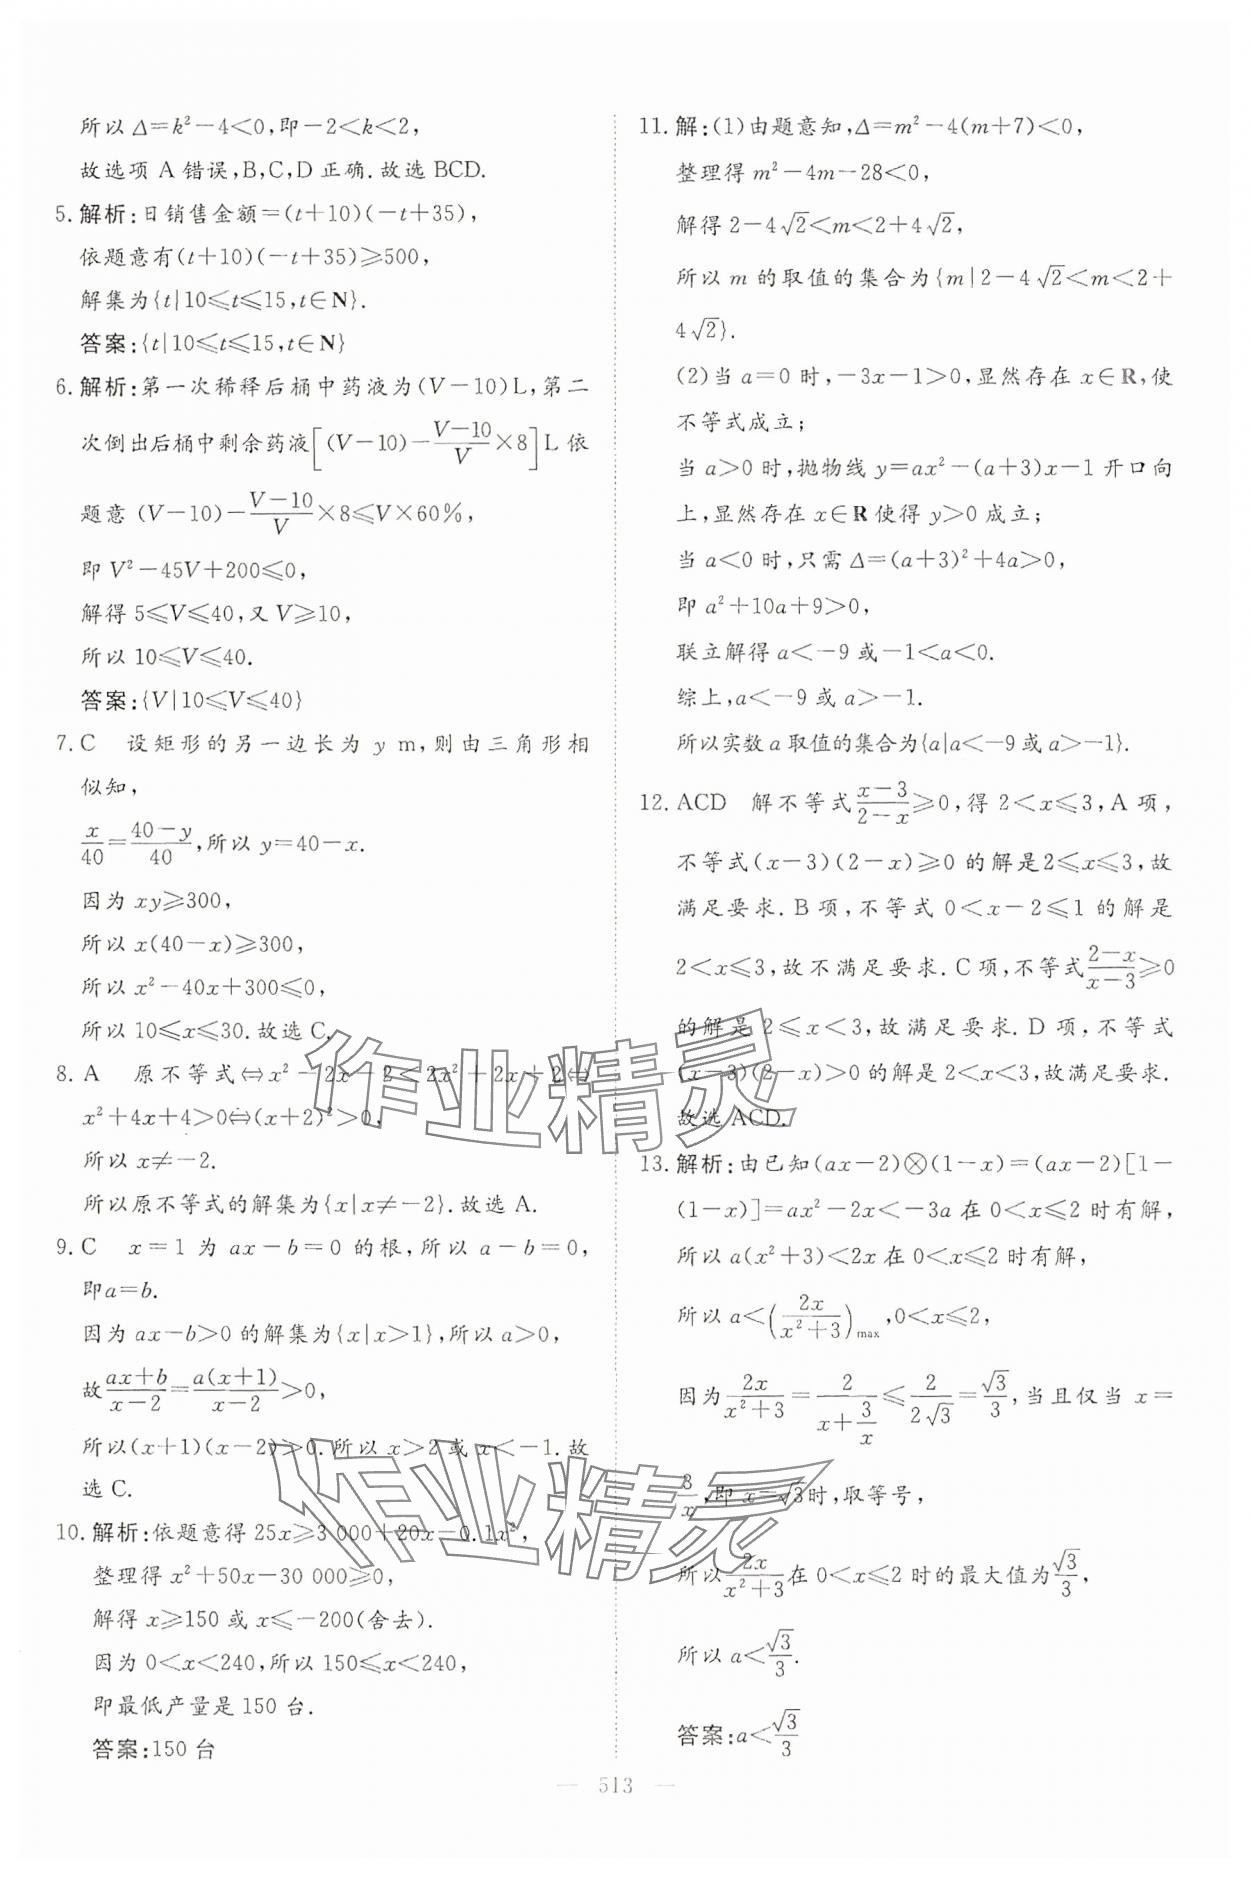 所以 Δ=k²-4<0,即-2<k<2,
故选项 A 错误,B,C,D 正确.故选 BCD.
5. 解析:日销售金额=(t+10)(-t+35),
依题意有(t+10)(-t+35)≥500,
解集为{t|10≤t≤15,t∈N}.
答案:{t|10≤t≤15,t∈N}
6. 解析:第一次稀释后桶中药液为(V-10)L,第二
次倒出后桶中剩余药液[(V-10)-\frac{V-10}{V}×8]L 依
题意 (V-10)-\frac{V-10}{V}×8≤V×60%,
即 V²-45V+200≤0,
解得 5≤V≤40,又 V≥10,
所以 10≤V≤40.
答案:{V|10≤V≤40}
7. C 设矩形的另一边长为 y m,则由三角形相
似知,
\frac{x}{40}=\frac{40-y}{40},所以 y=40-x.
因为 xy≥300,
所以 x(40-x)≥300,
所以 x²-40x+300≤0,
所以 10≤x≤30.故选 C.
8. A 原不等式⇔x²-2x-2<2x²+2x+2⇔
x²+4x+4>0⇔(x+2)²>0,
所以 x≠-2.
所以原不等式的解集为{x|x≠-2}.故选 A.
9. C x=1 为 ax-b=0 的根,所以 a-b=0,
即a=b.
因为 ax-b>0 的解集为{x|x>1},所以 a>0,
故\frac{ax+b}{x-2}=\frac{a(x+1)}{x-2}>0,
所以(x+1)(x-2)>0.所以 x>2 或 x<-1.故
选 C.
10. 解析:依题意得 25x≥3 000+20x-0.1x²,
整理得 x²+50x-30 000≥0,
解得 x≥150 或 x≤-200(舍去).
因为 0<x<240,所以 150≤x<240,
即最低产量是 150 台.
答案:150 台
11. 解:(1)由题意知,Δ=m²-4(m+7)<0,
整理得 m²-4m-28<0,
解得 2-4√2<m<2+4√2,
所以 m 的取值的集合为{m|2-4√2<m<2+
4√2}.
(2)当 a=0 时,-3x-1>0,显然存在 x∈R,使
不等式成立;
当 a>0 时,抛物线 y=ax²-(a+3)x-1 开口向
上,显然存在 x∈R 使得 y>0 成立;
当 a<0 时,只需 Δ=(a+3)²+4a>0,
即 a²+10a+9>0,
联立解得 a<-9 或-1<a<0.
综上,a<-9 或 a>-1.
所以实数 a 取值的集合为{a|a<-9 或 a>-1}.
12. ACD 解不等式\frac{x-3}{2-x}≥0,得 2<x≤3,A 项,
不等式(x-3)(2-x)≥0 的解是2≤x≤3,故
满足要求.B 项,不等式 0<x-2≤1 的解是
2<x≤3,故不满足要求.C 项,不等式\frac{2-x}{x-3}≥0
的解是 2≤x<3,故满足要求.D 项,不等式
(x-3)(2-x)>0 的解是 2<x<3,故满足要求.
故选 ACD.
13. 解析:由已知(ax-2)⊗(1-x)=(ax-2)[1-
(1-x)]=ax²-2x<-3a 在 0<x≤2 时有解,
所以 a(x²+3)<2x 在 0<x≤2 时有解,
所以 a<(\frac{2x}{x²+3})max,0<x≤2,
因为\frac{2x}{x²+3}=\frac{2}{x+\frac{3}{x}}≤\frac{2}{2√3}=\frac{√3}{3},当且仅当 x=
\frac{3}{x},即 x=√3时,取等号,
所以\frac{2x}{x²+3}在 0<x≤2 时的最大值为\frac{√3}{3},
所以 a<\frac{√3}{3}.
答案:a<\frac{√3}{3}
作业精灵
作业精灵
— 513 —